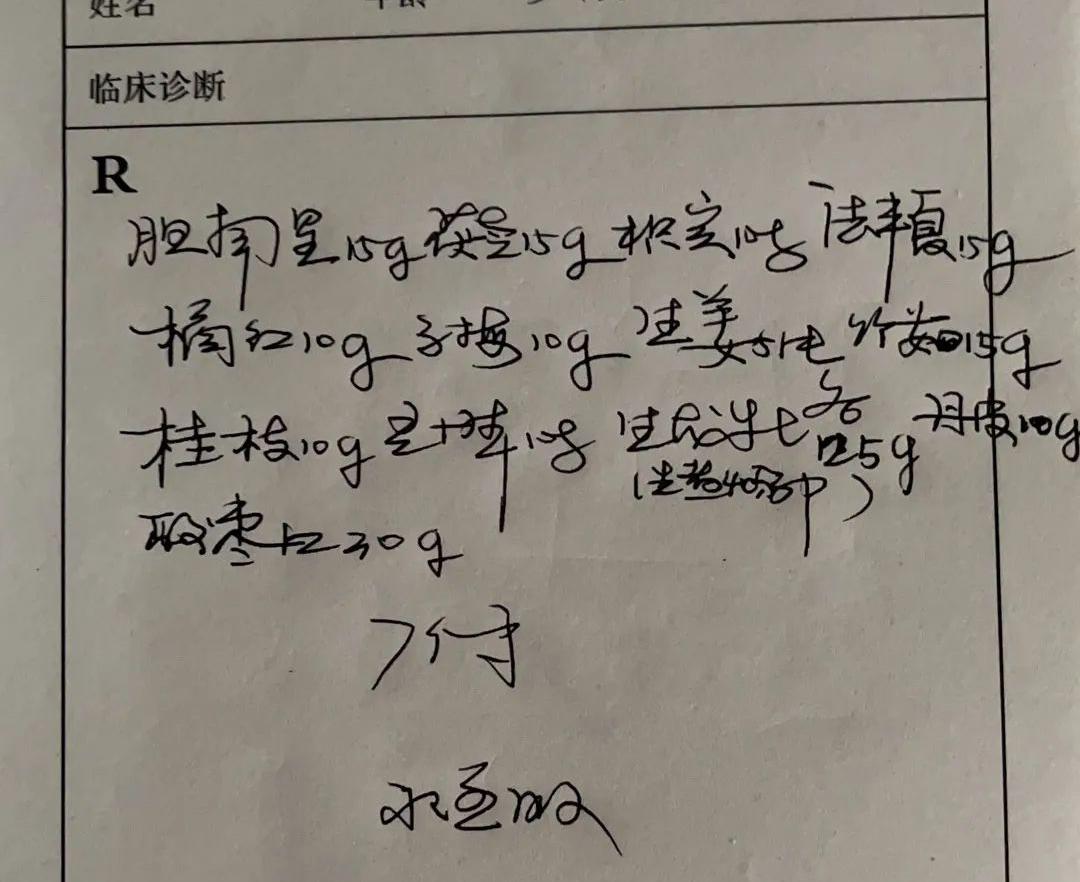 姓名 年龄
临床诊断
R
胆南星15g 茯苓15g 枳实10g 法半夏15g
橘红10g 乌梅10g 生姜5片 竹茹15g
桂枝10g 10g 生龙牡各25g 丹皮10g
(先煎40分钟)
酸枣仁30g
7付
水煎服